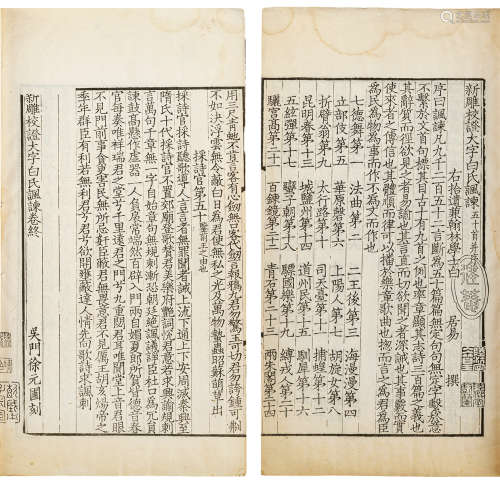 新雕校證大字白氏諷諫五十首并序
右拾遺兼翰林學士白 居易 撰
序曰諷諫凡九千二百五十二言為五十篇篇無定句句無定字繫於意
不繫於文首句標其目古十九首之例也卒章顯其志詩三百篇之義也
其辭質而徑欲見之者易諭也其言直而切欲聞之者深誡也其事覈而實
使來者之傳信也其體順而律可以播於樂章歌曲也揔而言之為君為臣
為民為物為事而作不為文而作也
七德舞第一 法曲第二 二王後第三 海漫漫第四
立部伎第五 華原磬第六 上陽人第七 胡旋女第八
折臂翁第九 太行路第十 司天臺第十一 捕蝗第十二
昆明春第十三 城鹽州第十四 道州民第十五 馴犀第十六
五絃彈第十七 蠻子朝第十八 驃國樂第十九 縛戎人第二十
驪宮高第二十一 百鍊鏡第二十二 青石第二十三 兩朱閣第二十四
用三尺青虵不直言客有心劔無口客代劔言報鵶九君勿矜玉可切君勿誇鍾可刜
不如決浮雲無令敝白日為君使無私之光及萬物蟄蟲昭蘇萌草出
採詩官第五十 鑒前王之由也
採詩官採詩聽歌導人言言者無罪聞者誡上流下通上下安周滅秦興至
隋氏十代採詩官不置郊廟登歌讚君美樂府艷詞悅君意若求興諭規刺
言萬句千章無一字自始章句無規刺漸恐朝廷絕諷議諍臣杜口為冗員
諫鼓高懸作虛器一人負扆常端然百辟入門兩自媚夏郎所賀皆德音春
官每奏唯祥瑞君之堂兮千里遠君之門兮九重閟君耳唯聞堂上言君眼
不見門前事貪吏害民無所忌奸臣蔽君無畏意君不見厲王胡亥煬帝之
季年群臣有利君無利君兮君兮欲開壅蔽達人情先向歌詩求諷刺
新雕校證大字白氏諷諫卷終
吳門徐元圃刻